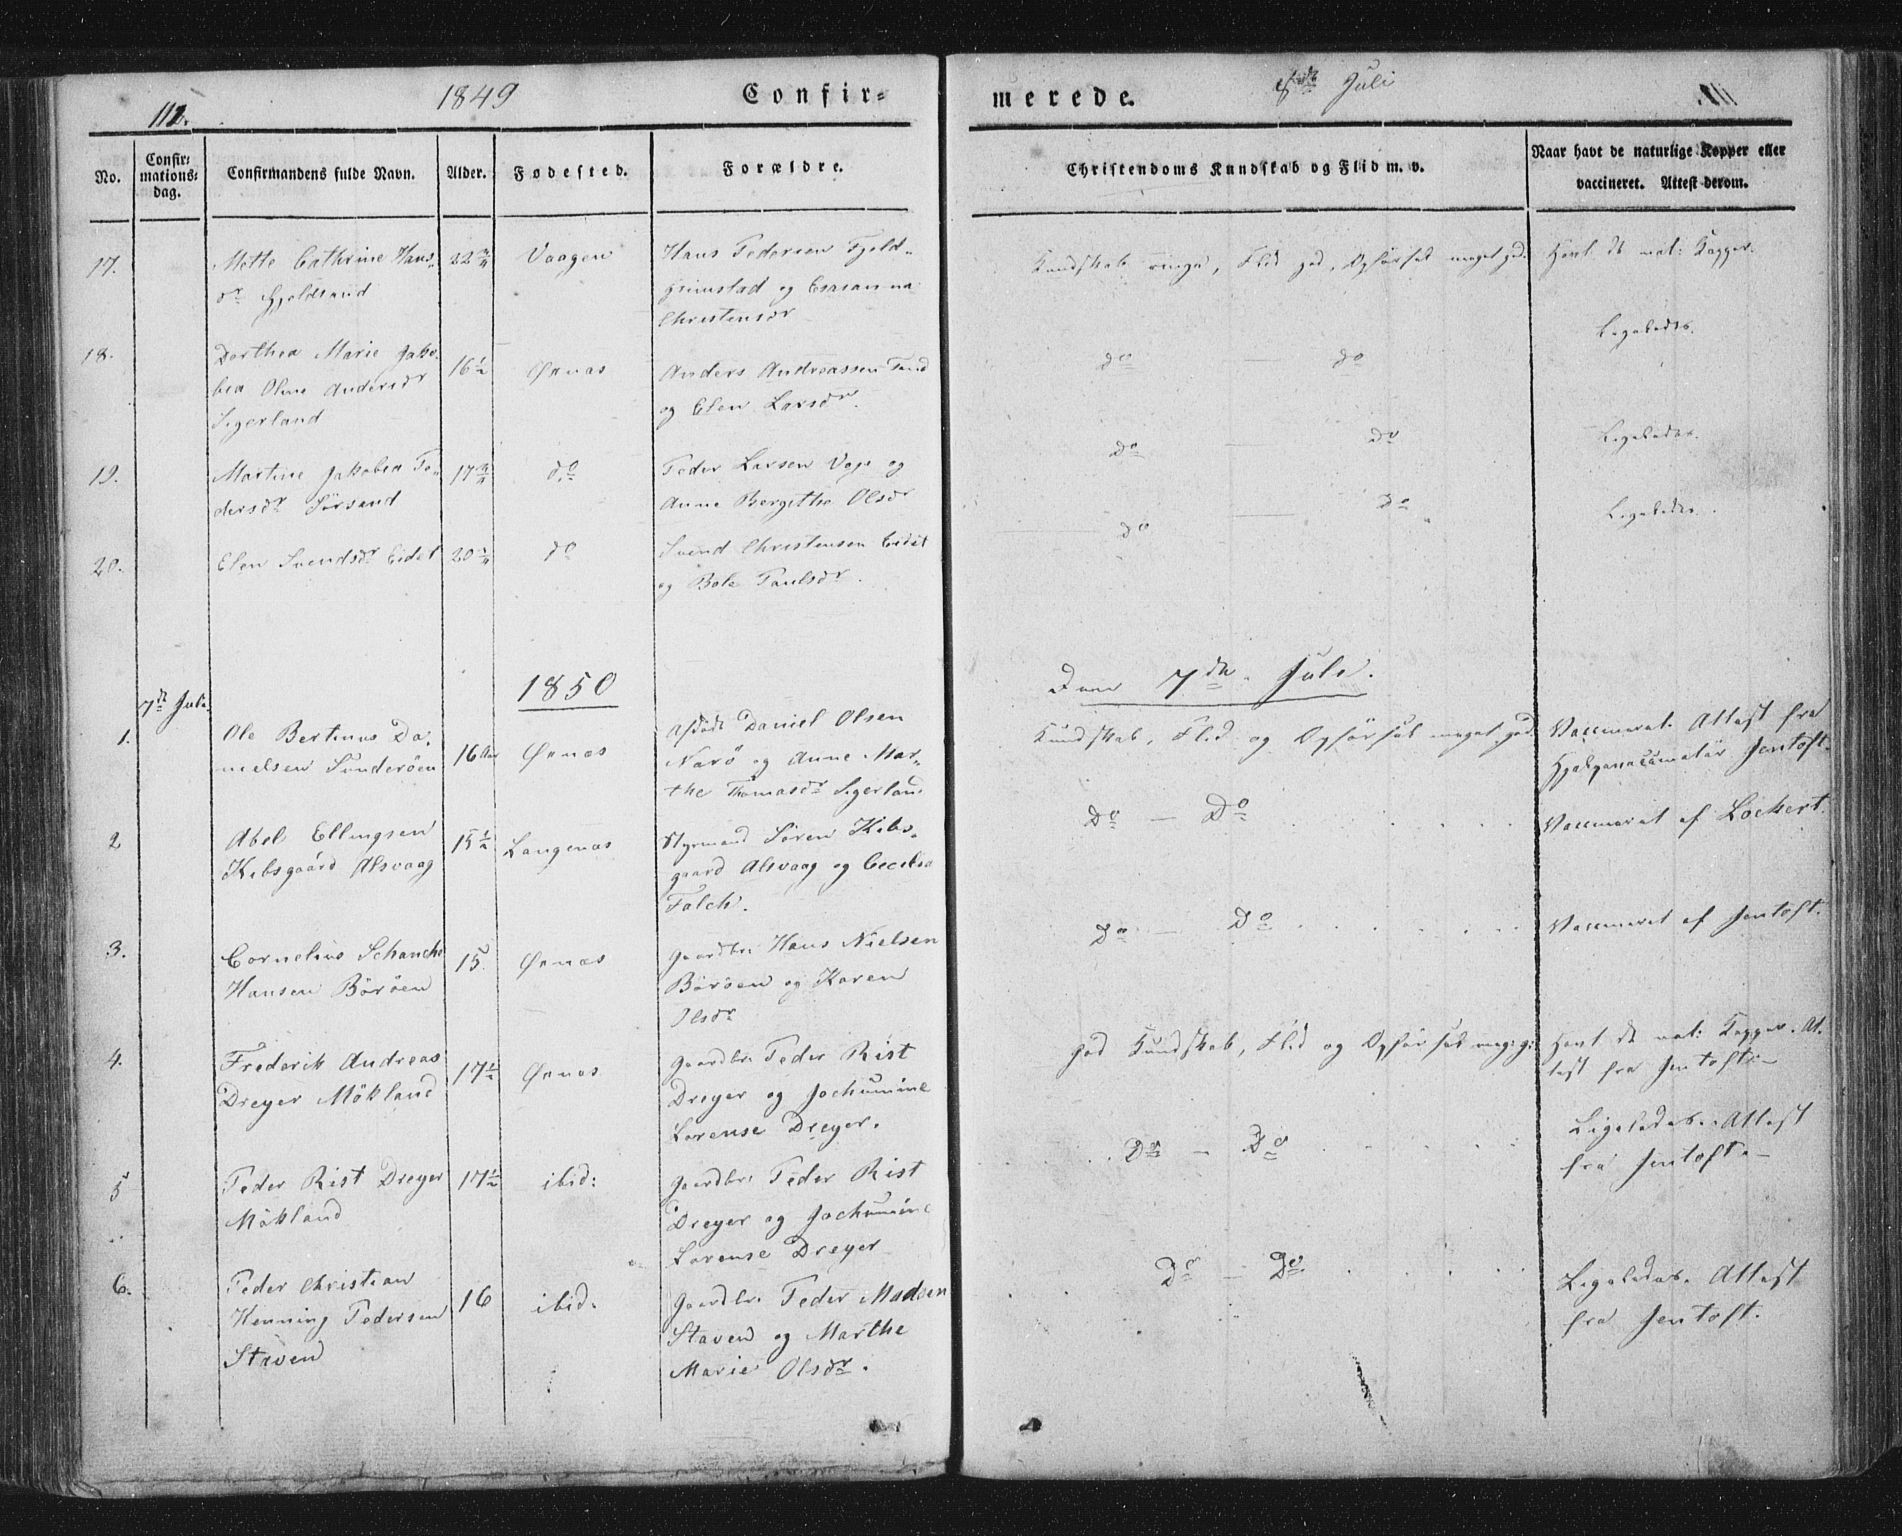 112.
1849
Confir-
merede.
8de Juli
No.
Confir-
mations-
dag.
Confirmandens fulde Navn.
Alder.
Fødested.
Forældre.
Christendoms Kundskab og Flid m. v.
Naar havt de naturlige Kopper eller
vaccineret. Attest derom.
17.
Mette Cathrine Hans-
dr Gjeldsand
22 3/4
Vaagen
Hans Pedersen Fjeld-
grimstad og
Christensdr
Kundskab ringe, Flid god, Opførsel meget god.
Havt de nat: Kopper.
18.
Dorthea Marie Jako-
bea Oline Andersdr
Sigerland
16 1/2
Øxnæs
Anders Andreassen
og Elen Larsdr.
do — do
Ligeledes.
19.
Martine Jakobea Pe-
dersdr Sørsand
17 3/4
do
Peder Larsen Vaje og
Anne Bergithe Olsdr
do — do
Ligeledes.
20.
Elen Svendsdr Eidet
20 3/4
do
Svend Christensen Eidet
og Bole Paulsdr.
do — do
Ligeledes.
1850
Den 7de Juli.
7de Juli.
1.
Ole Bertinus Da-
nielsen Tunderøen
16 Aar
Øxnæs
Afdøde Daniel Olsen
Narø og Anne Mar-
the Thomasdr Sigerland
Kundskab, Flid og Opførsel meget god.
Vaccineret. Attest fra
Hjelpevaccinatør Jentoft.
2
Abel Ellingsen
Kibsgaard Alsvaag
15 1/2
Langenæs
Styrmand Søren Kibs-
gaard Alsvaag og Cecilia
Falch.
Do — Do
Vaccineret af Lockert.
3.
Cornelius Schanche
Hansen Børøen
15
Øxnæs
Gaardbr: Hans Nielsen
Børøen og Karen
Olsdr
Do — Do
Vaccineret af Jentoft.
4.
Frederik Andreas
Dreyer Mökland
17 1/2
Øxnæs
Gaardbr: Peder Rist
Dreyer og Jochumine
Lorense Dreyer.
god Kundskab, Flid og Opførsel meg: g:
Havt de nat: Kopper. At-
test fra Jentoft. —
5
Peder Rist Dreyer
Mökland
17 1/2
ibid:
Gaardbr: Peder Rist
Dreyer og Jochumine
Lorense Dreyer
Do — Do
Ligeledes. Attest
fra Jentoft. —
6.
Peder Christian
Henning Pedersen
Staven
16
ibid.
Gaardbr: Peder Madsen
Staven og Marthe
Marie Olsdr.
Do — Do
Ligeledes. Attest
fra Jentoft.